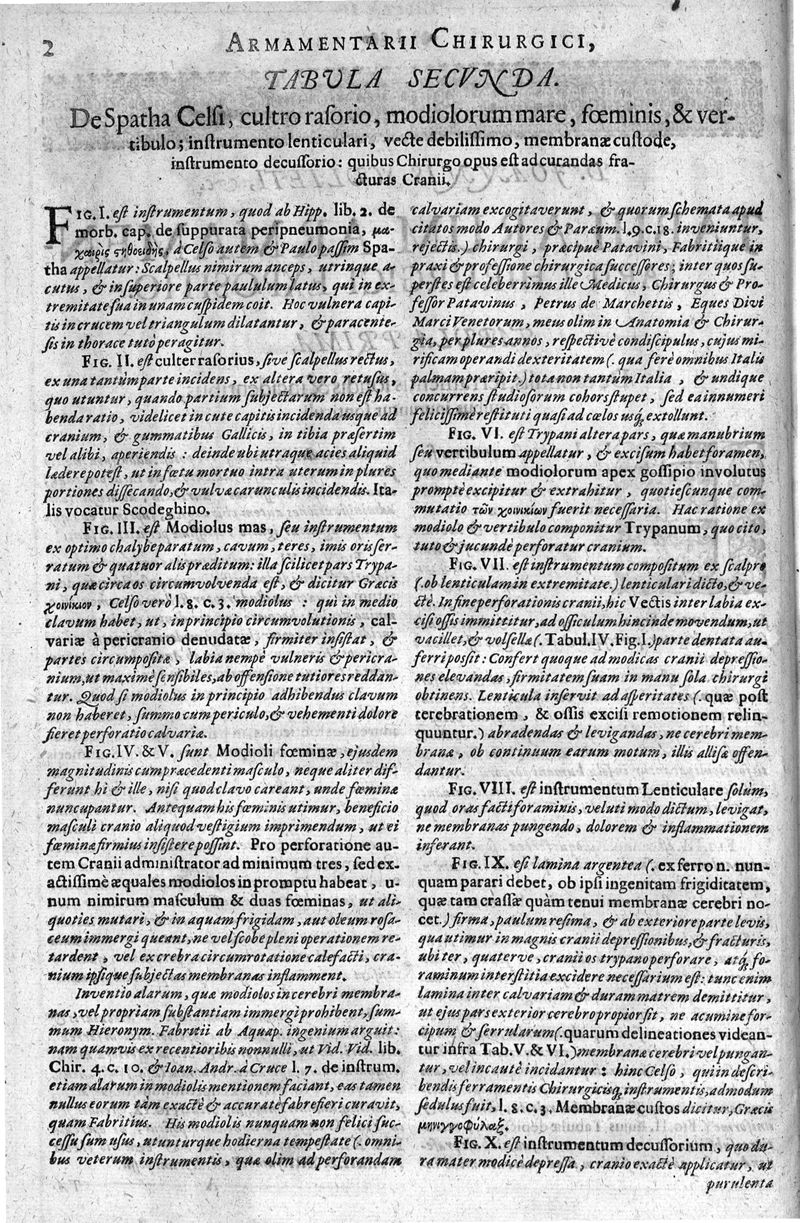 2
ARMAMENTARII CHIRURGICI,
TABVLA SECUNDA.
De Spatha Celsi, cultro rasorio, modiolorum mare, fœminis, & ver-
tibulo; instrumento lenticulari, vecte debilissimo, membranæ custode,
instrumento decussorio: quibus Chirurgo opus est ad curandas fra-
cturas Cranii.
FIG. I. est instrumentum, quod ab Hipp. lib. 2. de
morb. cap. de suppurata peripneumonia, μα-
χαιρὶς στηθοειδὴς, à Celso autem & Paulo passim Spa-
tha appellatur: Scalpellus nimirum anceps, utrinque a-
cutus, & in superiore parte paululum latus, qui in ex-
tremitate sua in unam cuspidem coit. Hoc vulnera capi-
tis in crucem vel triangulum dilatantur, & paracente-
sis in thorace tuto peragitur.
FIG. II. est culter rasorius, sive scalpellus rectus,
ex una tantùm parte incidens, ex altera vero retusus,
quo utuntur, quando partium subjectarum non est ha-
benda ratio, videlicet in cute capitis incidenda usque ad
cranium, & gummatibus Gallicis, in tibia præsertim
vel alibi, aperiendis: deinde ubi utraque acies aliquid
lædere potest, ut in fœtu mortuo intra uterum in plures
portiones dissecando, & vulvæ carunculis incidendis. Ita-
lis vocatur Scodeghino.
FIG. III. est Modiolus mas, seu instrumentum
ex optimo chalybe paratum, cavum, teres, imis oris ser-
ratum & quatuor alis præditum: illa scilicet pars Trypa-
ni, quæ circa os circumvolvenda est, & dicitur Græcis
χοινίκιον, Celso verò l. 8. c. 3. modiolus: qui in medio
clavum habet, ut, in principio circumvolutionis, cal-
variæ à pericranio denudatæ, firmiter insistat, &
partes circumpositæ, labia nempè vulneris & pericra-
nium, ut maximè sensibiles, ab offensione tutiores reddan-
tur. Quod si modiolus in principio adhibendus clavum
non haberet, summo cum periculo, & vehementi dolore
fieret perforatio calvariæ.
FIG. IV. & V. sunt Modioli fœminæ, ejusdem
magnitudinis cum præcedenti masculo, neque aliter dif-
ferunt hi & ille, nisi quod clavo careant, unde fœminæ
nuncupantur. Antequam his fœminis utimur, beneficio
masculi cranio aliquod vestigium imprimendum, ut ei
fœminæ firmius insistere possint. Pro perforatione au-
tem Cranii administrator ad minimum tres, sed ex-
actissimè æquales modiolos in promptu habeat, u-
num nimirum masculum & duas fœminas, ut ali-
quoties mutari, & in aquam frigidam, aut oleum rosa-
ceum immergi queant, ne vel scobe pleni operationem re-
tardent, vel ex crebra circumrotatione calefacti, cra-
nium ipsique subjectas membranas inflamment.
Inventio alarum, quæ modiolos in cerebri membra-
nas, vel propriam substantiam immergi prohibent, sum-
mum Hieronym. Fabritii ab Aquap. ingenium arguit:
nam quamvis ex recentioribus nonnulli, ut Vid. Vid. lib.
Chir. 4. c. 10. & Ioan. Andr. à Cruce l. 7. de instrum.
etiam alarum in modiolis mentionem faciant, eas tamen
nullus eorum tàm exactè & accuratè fabrefieri curavit,
quam Fabritius. His modiolis nunquam non felici suc-
cessu sum usus, utunturque hodierna tempestate (. omni-
bus veterum instrumentis, quæ olim ad perforandam
calvariam excogitaverunt, & quorum schemata apud
citatos modo Autores & Paræum. l. 9. c. 18. inveniuntur,
rejectis.) chirurgi, præcipuè Patavini, Fabritiique in
praxi & professione chirurgica successores; inter quos su-
perstes est celeberrimus ille Medicus, Chirurgus & Pro-
fessor Patavinus, Petrus de Marchettis, Eques Divi
Marci Venetorum, meus olim in Anatomia & Chirur-
gia, per plures annos, respectivè condiscipulus, cujus mi-
rificam operandi dexteritatem (. qua ferè omnibus Italis
palmam præripit.) tota non tantùm Italia, & undique
concurrens studiosorum cohors stupet, sed ea innumeri
felicissimè restituti quasi ad cœlos usq; extollunt.
FIG. VI. est Trypani altera pars, quæ manubrium
seu vertibulum appellatur, & excisum habet foramen,
quo mediante modiolorum apex gossipio involutus
promptè excipitur & extrahitur, quotiescunque com-
mutatio τῶν χοινικίων fuerit necessaria. Hac ratione ex
modiolo & vertibulo componitur Trypanum, quo cito,
tutò & jucundè perforatur cranium.
FIG. VII. est instrumentum compositum ex scalpro
(. ob lenticulam in extremitate.) lenticulari dicto, & ve-
cte. In fine perforationis cranii, hic Vectis inter labia ex-
cisi ossis immittitur, ad officulum hinc inde movendum, ut
vacillet, & volsellæ (. Tabul. IV. Fig. I.) parte dentata au-
ferri possit: Confert quoque ad modicas cranii depressio-
nes elevandas, firmitatem suam in manu sola chirurgi
obtinens. Lenticula inservit ad asperitates (. quæ post
terebrationem, & ossis excisi remotionem relin-
quuntur.) abradendas & levigandas, ne cerebri mem-
branæ, ob continuum earum motum, illis allisæ offen-
dantur.
FIG. VIII. est instrumentum Lenticulare solùm,
quod oras facti foraminis, veluti modo dictum, levigat,
ne membranas pungendo, dolorem & inflammationem
inferant.
FIG. IX. est lamina argentea (. ex ferro n. nun-
quam parari debet, ob ipsi ingenitam frigiditatem,
quæ tam crassæ quàm tenui membranæ cerebri no-
cet.) firma, paulum resima, & ab exteriore parte levis,
qua utimur in magnis cranii depressionibus, & fracturis,
ubi ter, quaterve, cranii os trypano perforare, atq; fo-
raminum interstitia excidere necessarium est: tunc enim
lamina inter calvariam & duram matrem demittitur,
ut ejus pars exterior cerebro propior sit, ne acumine for-
cipum & serrularum (. quarum delineationes videan-
tur infra Tab. V. & VI.) membranæ cerebri vel pungan-
tur, vel incautè incidantur: hinc Celso, qui in descri-
bendis ferramentis Chirurgicisq; instrumentis, admodum
sedulus fuit, l. 8. c. 3. Membranæ custos dicitur, Græcis
μηνιγγοφύλαξ.
FIG. X. est instrumentum decussorium, quo du-
ra mater modicè depressa, cranio exactè applicatur, ut
purulenta